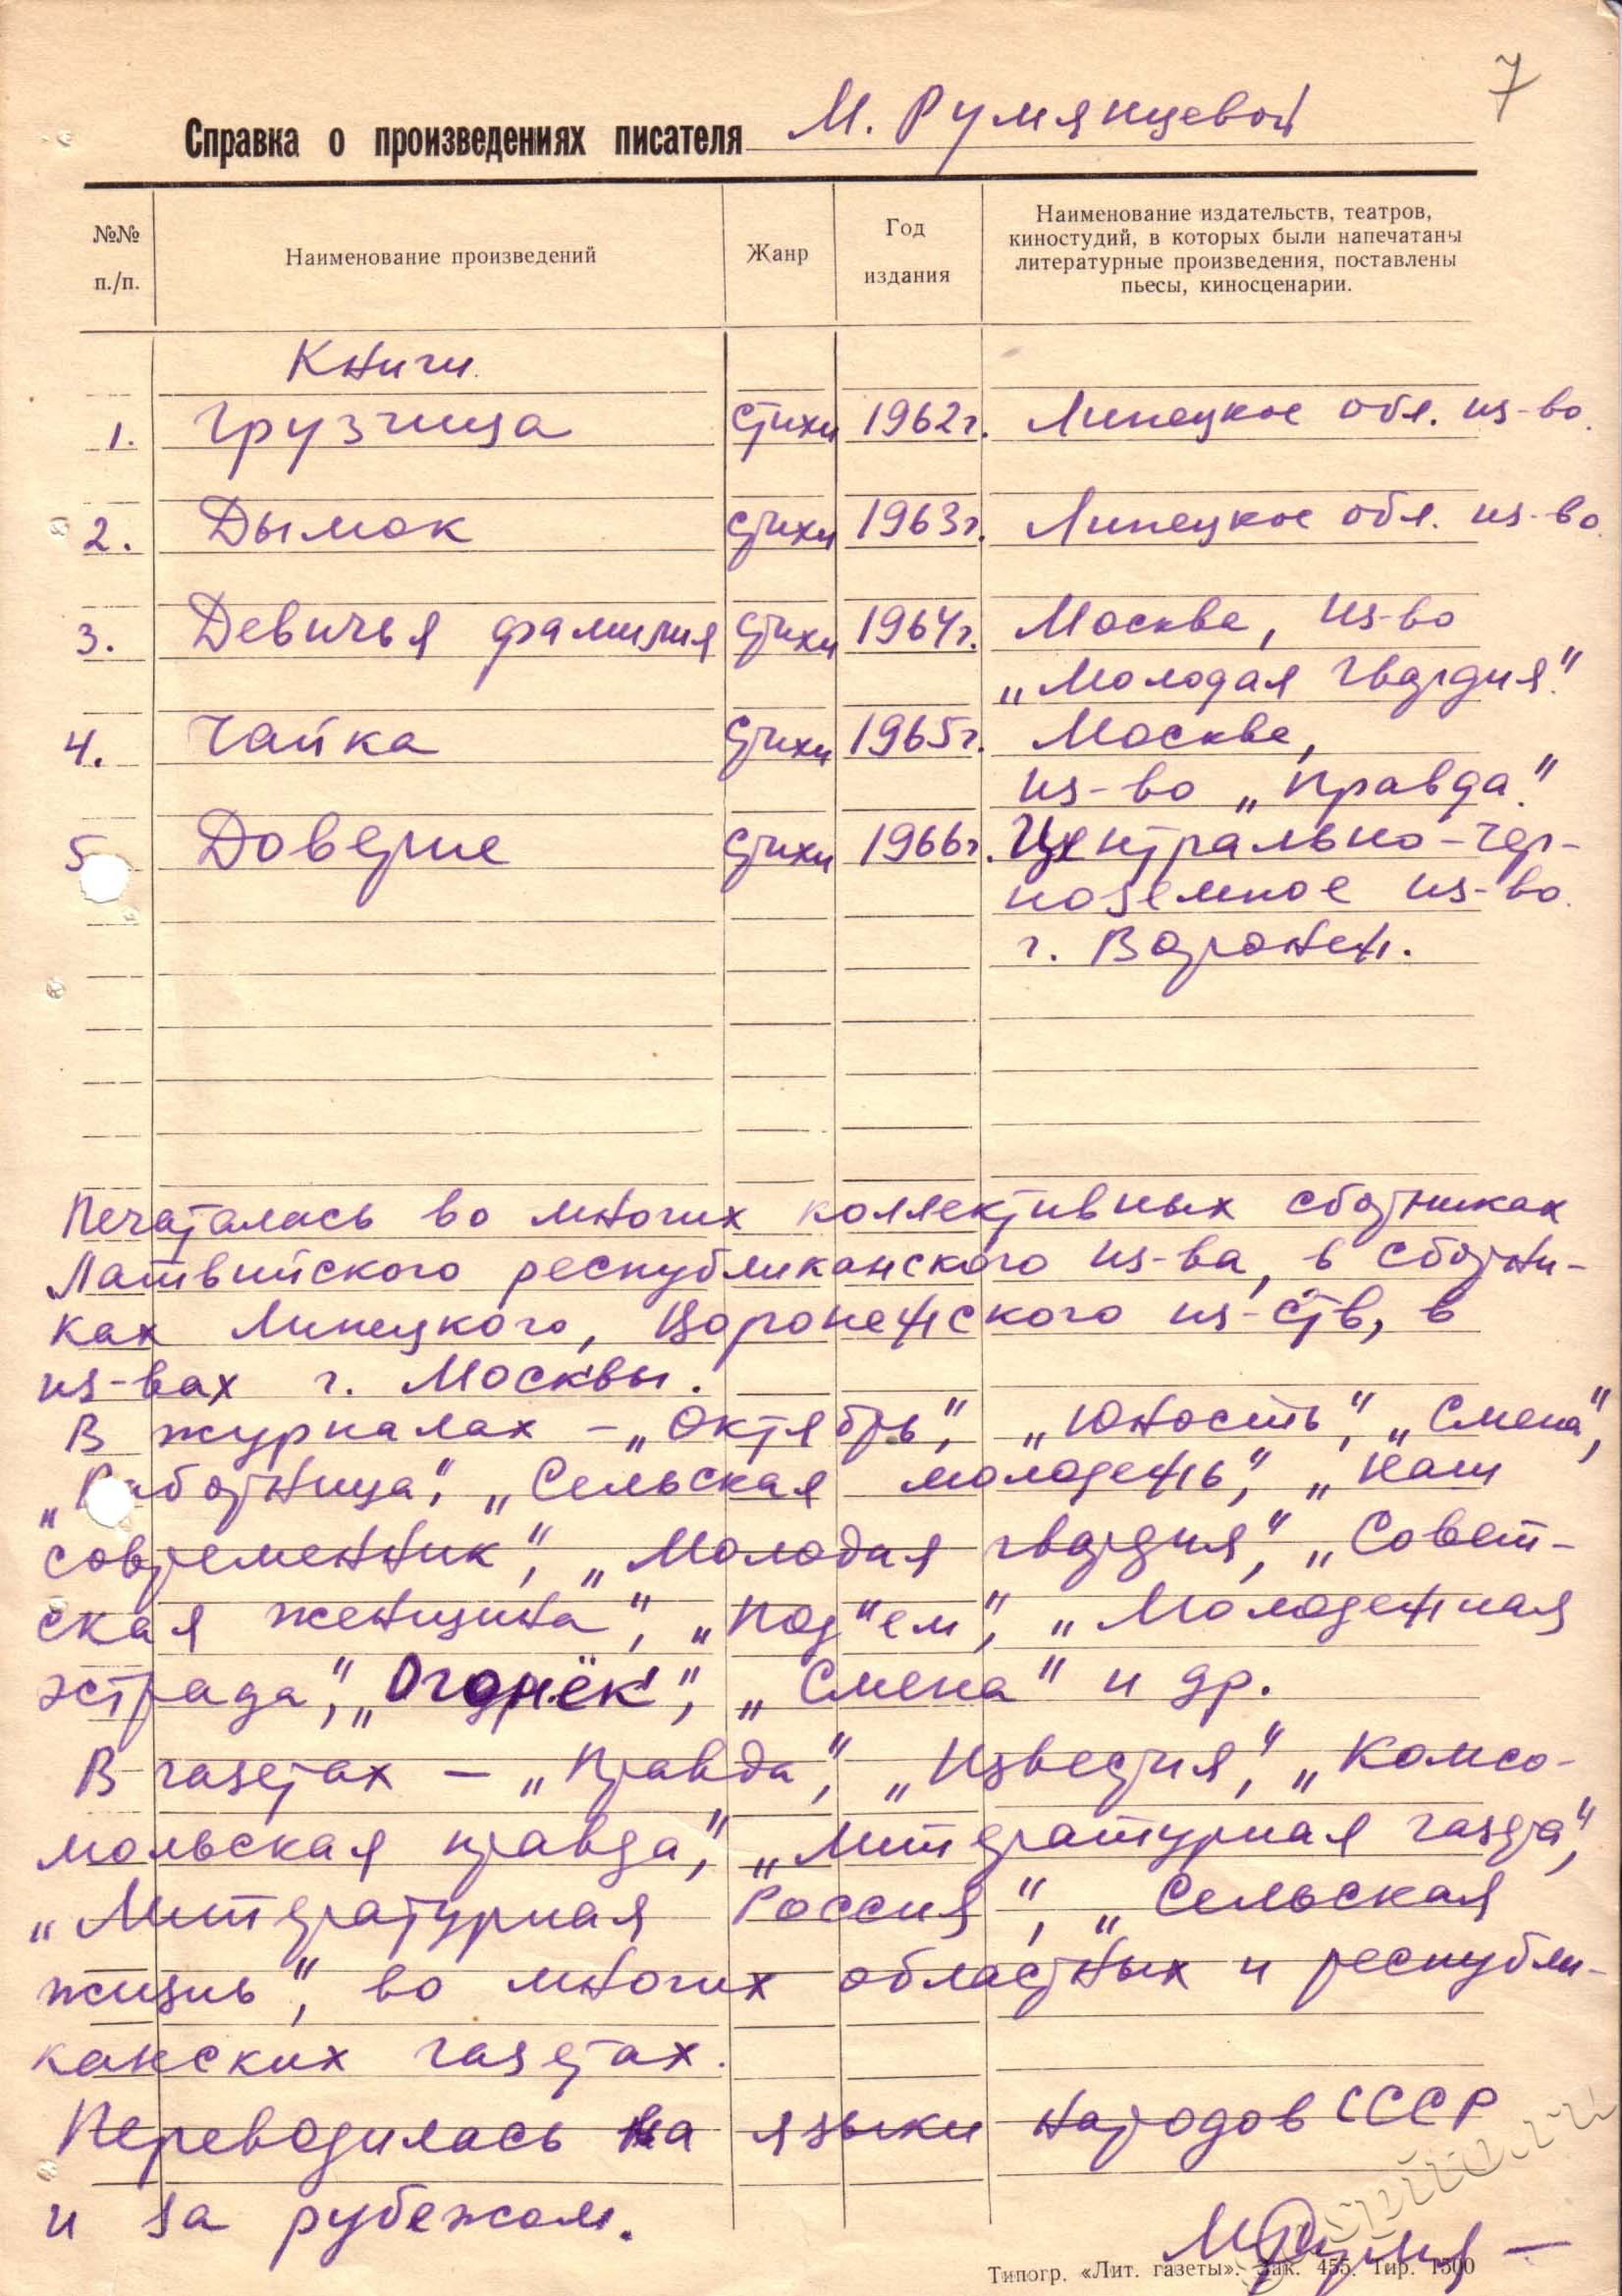 7
Справка о произведениях писателя М. Румянцевой
№№ п./п.
Наименование произведений
Жанр
Год издания
Наименование издательств, театров,
киностудий, в которых были напечатаны
литературные произведения, поставлены
пьесы, киносценарии.
Книги.
1. Грузчица стихи 1962г. Липецкое обл. из-во.
2. Дымок стихи 1963г. Липецкое обл. из-во.
3. Девичья фамилия стихи 1964г. Москва, из-во
„Молодая гвардия".
4. Чайка стихи 1965г. Москва,
из-во „Правда".
5 Доверие стихи 1966г. Центрально-чер-
ноземное из-во.
г. Воронеж.
Печаталась во многих коллективных сборниках
Латвийского республиканского из-ва, в сборни-
ках Липецкого, Воронежского из-ств, в
из-вах г. Москвы.
В журналах – „Октябрь", „Юность", „Смена",
„Работница", „Сельская молодежь", „Наш
современник", „Молодая гвардия", „Совет-
ская женщина", „Под"ем", „Молодежная
эстрада", „Огонёк", „Смена" и др.
В газетах – „Правда", „Известия", „Комсо-
мольская правда", „Литературная газета",
„Литературная Россия", „Сельская
жизнь", во многих областных и республи-
канских газетах.
Переводилась на языки народов СССР
и за рубежом.
Типогр. «Лит. газеты». Зак. 455. Тир. 1500